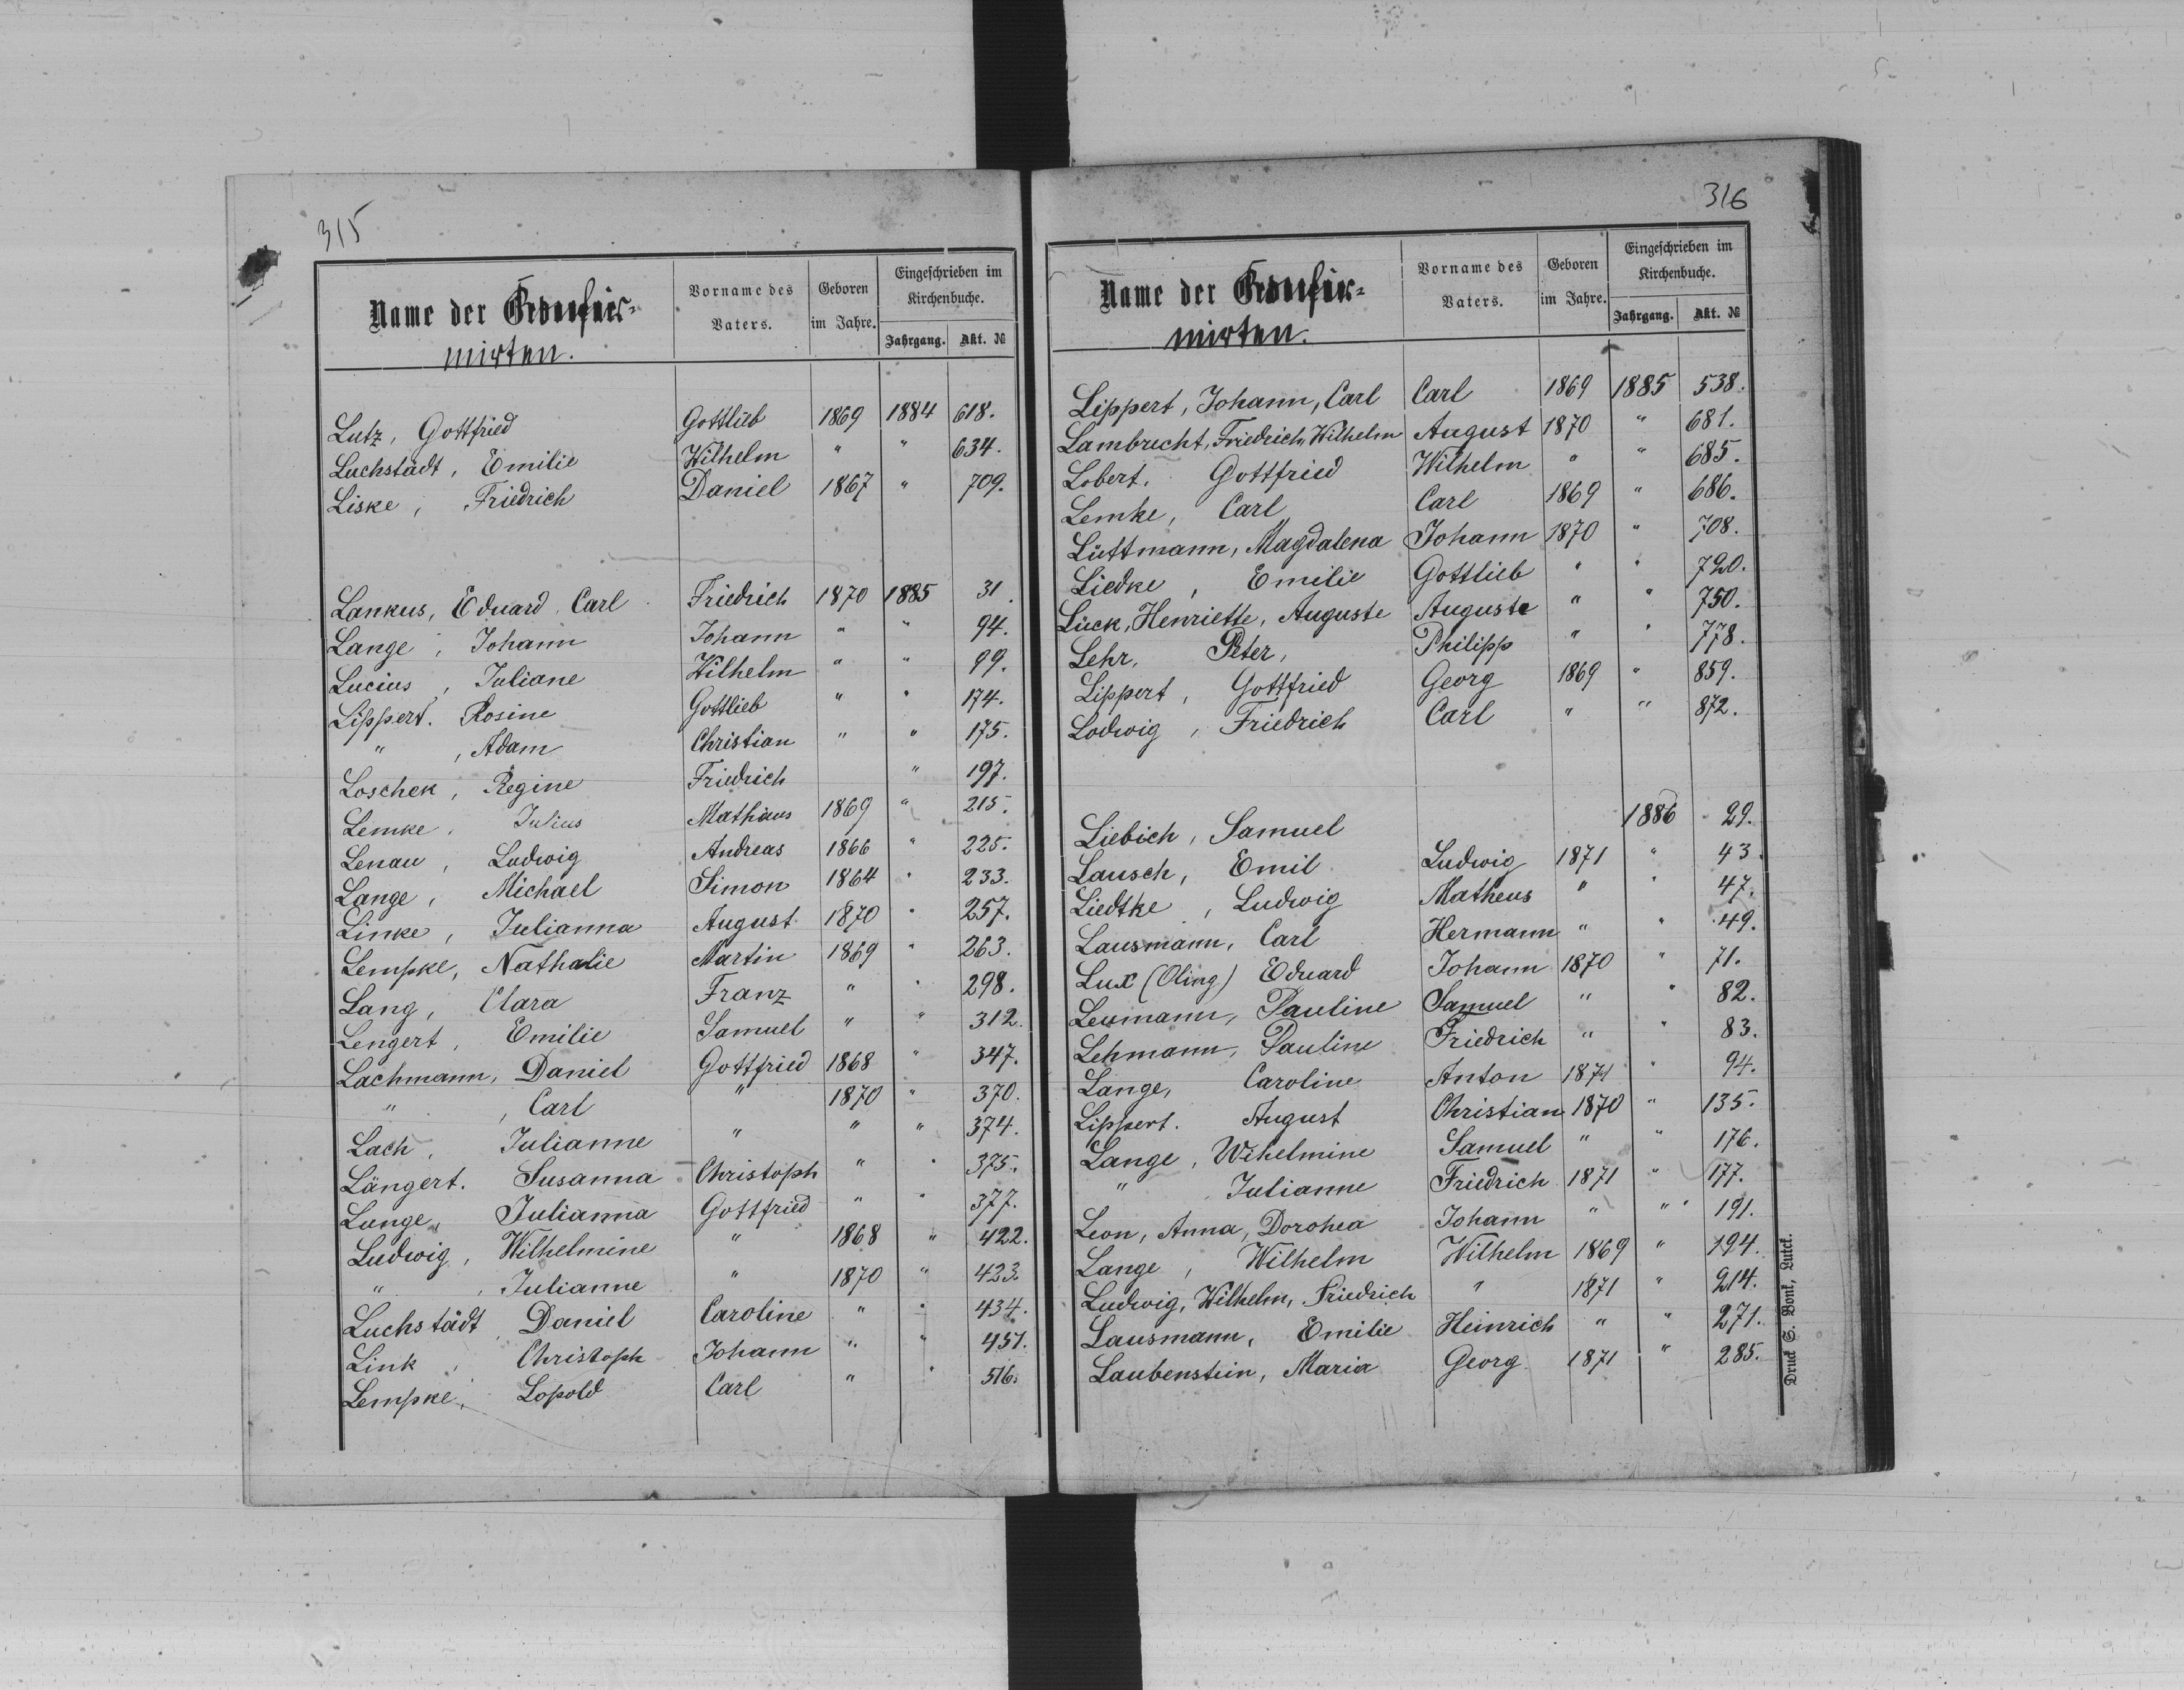 315
Name der
mirten.
Vorname des Vaters.
Geboren im Jahre.
Eingeschrieben im Kirchenbuche.
Jahrgang. Akt. №
Lutz, Gottfried Gottlieb 1869 1884 618.
Luchstädt, Emilie Wilhelm " " 634.
Liske, Friedrich Daniel 1867 " 709.
Lankus, Eduard, Carl Friedrich 1870 1885 31.
Lange, Johann Johann " " 94.
Lucius, Juliane Wilhelm " " 99.
Lippert. Rosine Gottlieb " " 174.
" , Adam Christian " " 175.
Loschek, Regine Friedrich " 197.
Lemke, Julius Mathäus 1869 " 215.
Lenau, Ludwig Andreas 1866 " 225.
Lange, Michael Simon 1864 " 233.
Linke, Julianna August 1870 " 257.
Lempke, Nathalie Martin 1869 " 263.
Lang, Clara Franz " " 298.
Lengert, Emilie Samuel " " 312.
Lachmann, Daniel Gottfried 1868 " 347.
" , Carl " 1870 " 370.
Lach, Julianne " " " 374.
Längert. Susanna Christoph " " 375.
Lange, Julianna Gottfried " " 377.
Ludwig, Wilhelmine " 1868 " 422.
" , Julianne " 1870 " 423.
Luchstädt, Daniel Caroline " " 434.
Link, Christoph Johann " " 451.
Lempke, Lopold Carl " " 516.
316
Name der
mirten.
Vorname des Vaters.
Geboren im Jahre.
Eingeschrieben im Kirchenbuche.
Jahrgang. Akt. №
Lippert, Johann, Carl Carl 1869 1885 538.
Lambrecht, Friedrich, Wilhelm August 1870 " 681.
Lobert. Gottfried Wilhelm " " 685.
Lemke, Carl Carl 1869 " 686.
Lüttmann, Magdalena Johann 1870 " 708.
Liedke, Emilie Gottlieb " " 720.
Lück, Henriette, Auguste Auguste " " 750.
Lehr, Peter, Philipp " " 778.
Lippert, Gottfried Georg 1869 " 859.
Lodwig, Friedrich Carl " " 872.
Liebich, Samuel 1886 29.
Lausch, Emil Ludwig 1871 " 43.
Liedtke, Ludwig Matheus " " 47.
Lausmann, Carl Hermann " " 49.
Lux (Oling) Eduard Johann 1870 " 71.
Leumann, Pauline Samuel " " 82.
Lehmann, Pauline Friedrich " " 83.
Lange, Caroline Anton 1871 " 94.
Lippert. August Christian 1870 " 135.
Lange, Wihelmine Samuel " " 176.
" , Julianne Friedrich 1871 " 177.
Leon, Anna, Dorohea Johann " " 191.
Lange, Wilhelm Wilhelm 1869 " 194.
Ludwig, Wilhelm, Friedrich " 1871 " 214.
Lausmann, Emilie Heinrich " " 271.
Laubenstein, Maria Georg 1871 " 285.
Druck S. Bonk, Lutck.